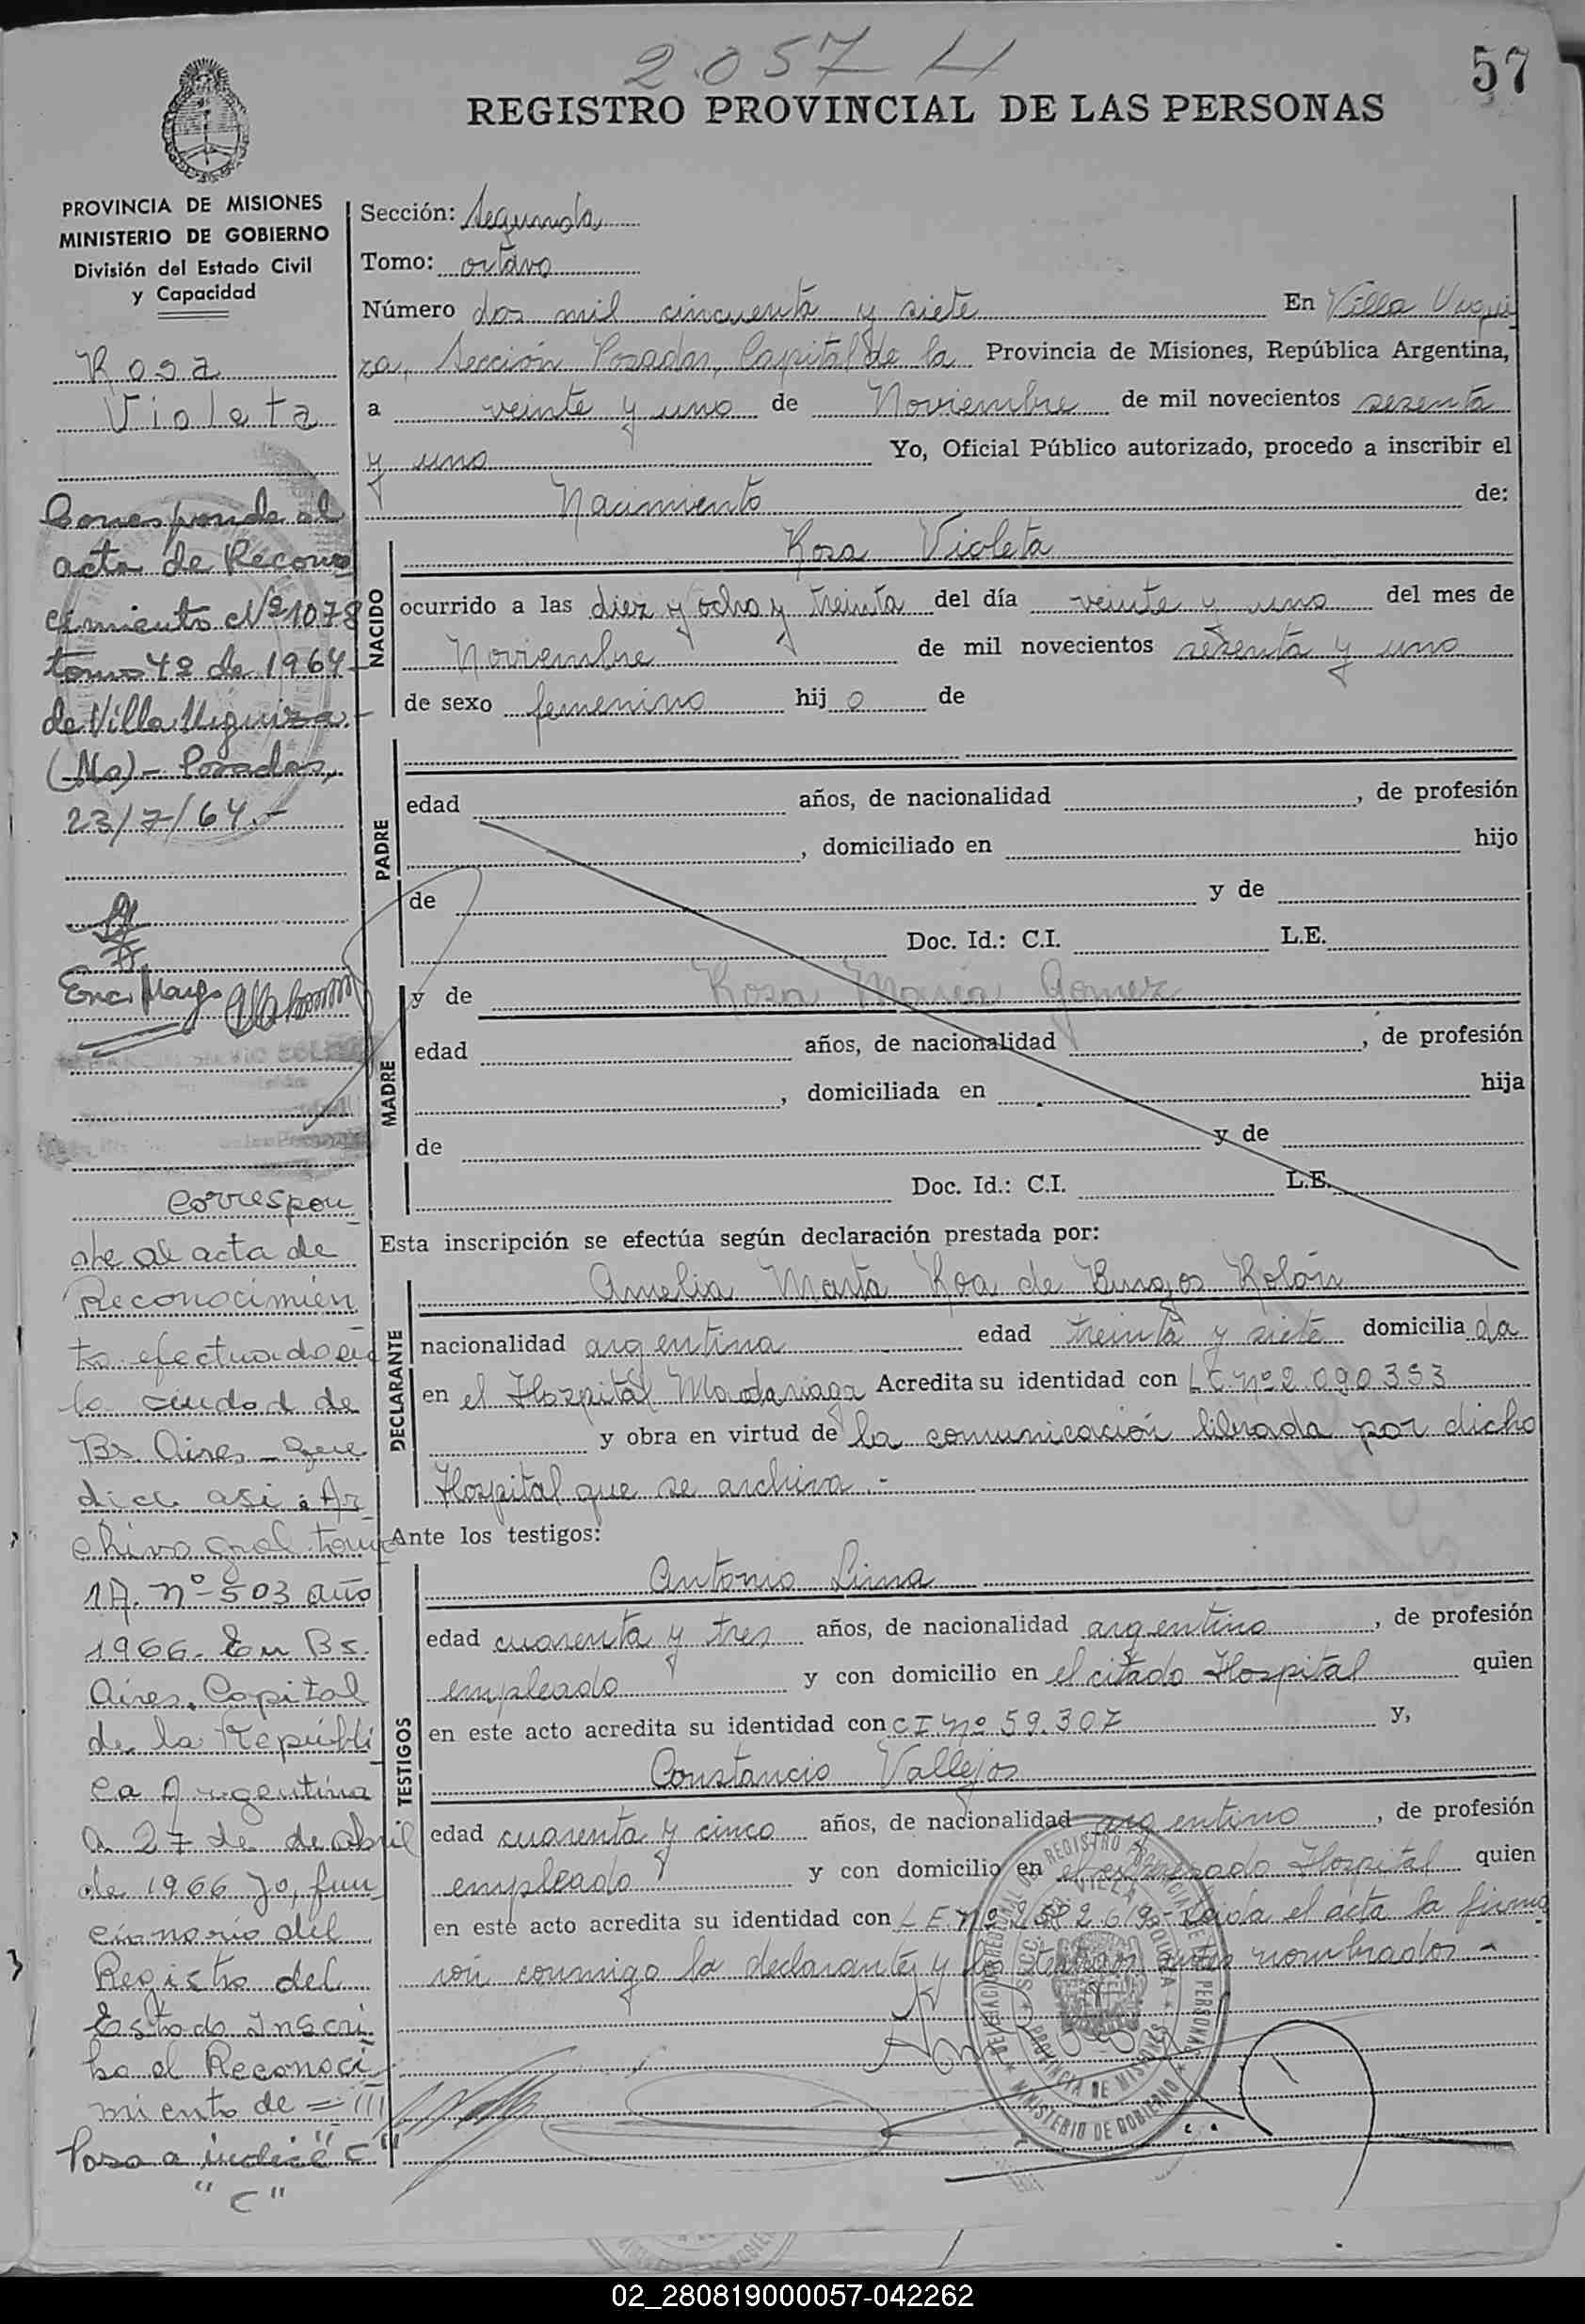 2.057
57
REGISTRO PROVINCIAL DE LAS PERSONAS
PROVINCIA DE MISIONES
MINISTERIO DE GOBIERNO
División del Estado Civil
y Capacidad
Rosa
Violeta
Corresponde al
acta de Recono
cimiento Nº 1078
tomo 4º de 1964
de Villa Urquiza.-
(Mo)- Posadas,
23/7/64.-
Correspon
de al acta de
Reconocimien
to efectuado en
la ciudad de
Bs. Aires - que
dice asi: Ar
chivo gral. tomo
1A. nº 503 año
1966. En Bs.
Aires. Capital
de la Repúbli
ca Argentina
a 27 de de abril
de 1966 yo, fun
cionario del
Registro del
Estado Inscri
bo el Reconoci
miento de = ///
Pasa a indice "C"
"C"
Sección: Segunda
Tomo: octavo
Número dos mil cincuenta y siete En Villa Urqui
za, Sección Posadas, Capital de la Provincia de Misiones, República Argentina,
a veinte y uno de Noviembre de mil novecientos sesenta
y uno Yo, Oficial Público autorizado, procedo a inscribir el
Nacimiento de:
Rosa Violeta
NACIDO
ocurrido a las diez y ocho y treinta del día veinte y uno del mes de
Noviembre de mil novecientos sesenta y uno
de sexo femenino hij a de
PADRE
edad años, de nacionalidad , de profesión
, domiciliado en hijo
de y de
Doc. Id.: C.I. L.E.
MADRE
y de Rosa Maria Gomez
edad años, de nacionalidad , de profesión
, domiciliada en hija
de y de
Doc. Id.: C.I. L.E.
Esta inscripción se efectúa según declaración prestada por:
DECLARANTE
Amelia Marta Roa de Burgos Rolón
nacionalidad argentina edad treinta y siete domicilia da
en el Hospital Madariaga Acredita su identidad con LC nº 2090353
y obra en virtud de la comunicación librada por dicho
Hospital que se archiva.-
Ante los testigos:
TESTIGOS
Antonio Lima
edad cuarenta y tres años, de nacionalidad argentino , de profesión
empleado y con domicilio en el citado Hospital quien
en este acto acredita su identidad con C I nº 59.307 y,
Constancio Vallejos
edad cuarenta y cinco años, de nacionalidad argentino , de profesión
empleado y con domicilio en el expresado Hospital quien
en este acto acredita su identidad con L E nº Leída el acta la firma
con conmigo la declarante y los testigos antes nombrados -
02_280819000057-042262